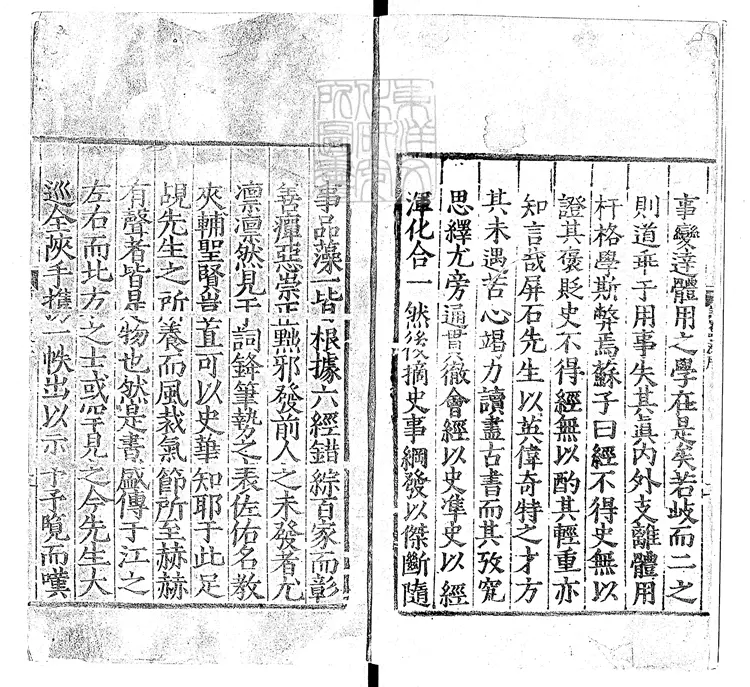 事變達體用之學在是矣若歧而二之
則道乖于用事失其眞內外支離體用
杆格學斯弊焉蘇子曰經不得史無以
證其褒貶史不得經無以酌其輕重亦
知言哉屏石先生以英偉奇特之才方
其未遇苦心竭力讀盡古書而其攷究
思繹尤旁通貫徹會經以史準史以經
渾化合一然後摘史事綱發以傑斷隨
事品藻一皆根據六經錯綜百家而彰
善癉惡崇正黜邪發前人之未發者尤
凛凛然見于詞鋒筆勢之表佐佑名教
夾輔聖賢豈直可以史筆知耶于此足
覘先生之所養而風裁氣節所至赫赫
有聲者皆是物也然是書盛傳于江之
左右而北方之士或罕見之今先生大
巡全陜手攜一帙出以示予予覽而嘆